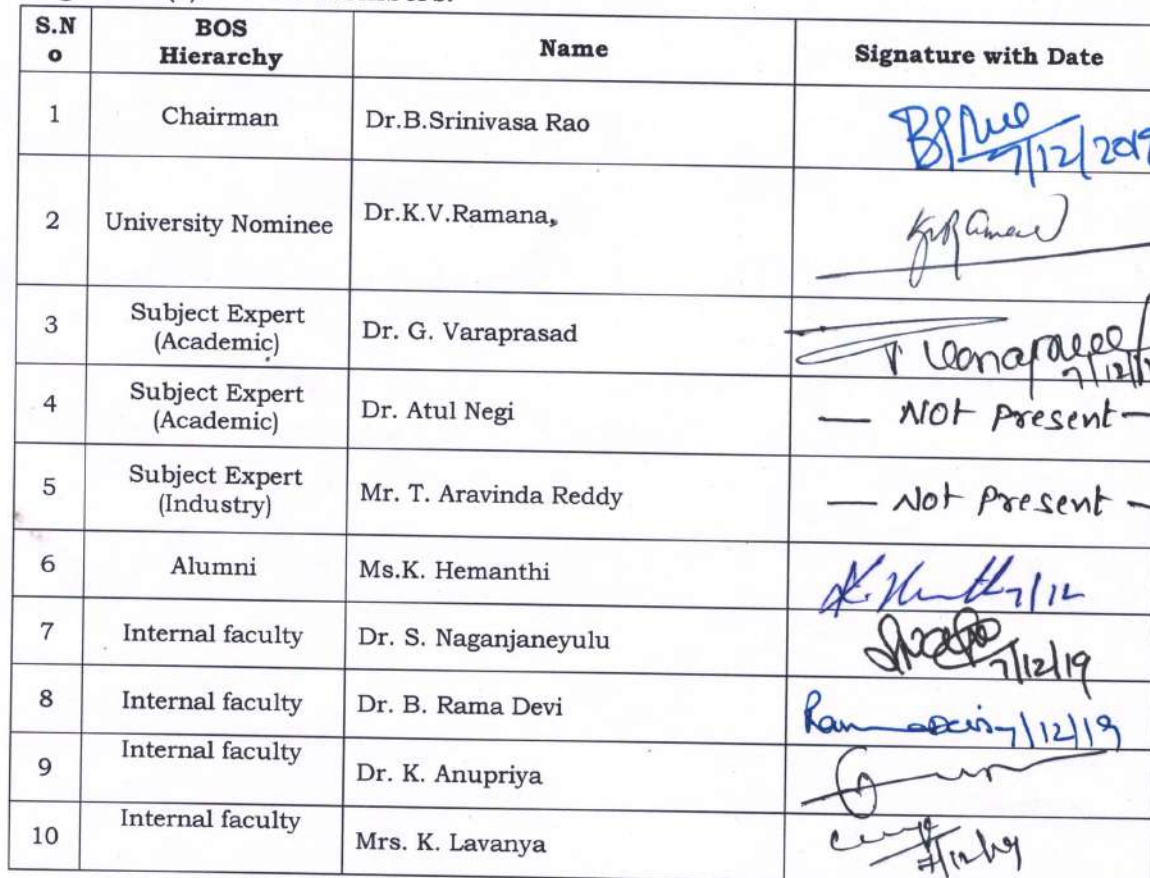 S.N
o
BOS
Hierarchy
Name
Signature with Date
1
Chairman
Dr.B.Srinivasa Rao
7/12/2019
2
University Nominee
Dr.K.V.Ramana,
3
Subject Expert
(Academic)
Dr. G. Varaprasad
7/12/
4
Subject Expert
(Academic)
Dr. Atul Negi
— Not present —
5
Subject Expert
(Industry)
Mr. T. Aravinda Reddy
— Not present —
6
Alumni
Ms.K. Hemanthi
7/12
7
Internal faculty
Dr. S. Naganjaneyulu
7/12/19
8
Internal faculty
Dr. B. Rama Devi
7/12/19
9
Internal faculty
Dr. K. Anupriya
10
Internal faculty
Mrs. K. Lavanya
7/12/19